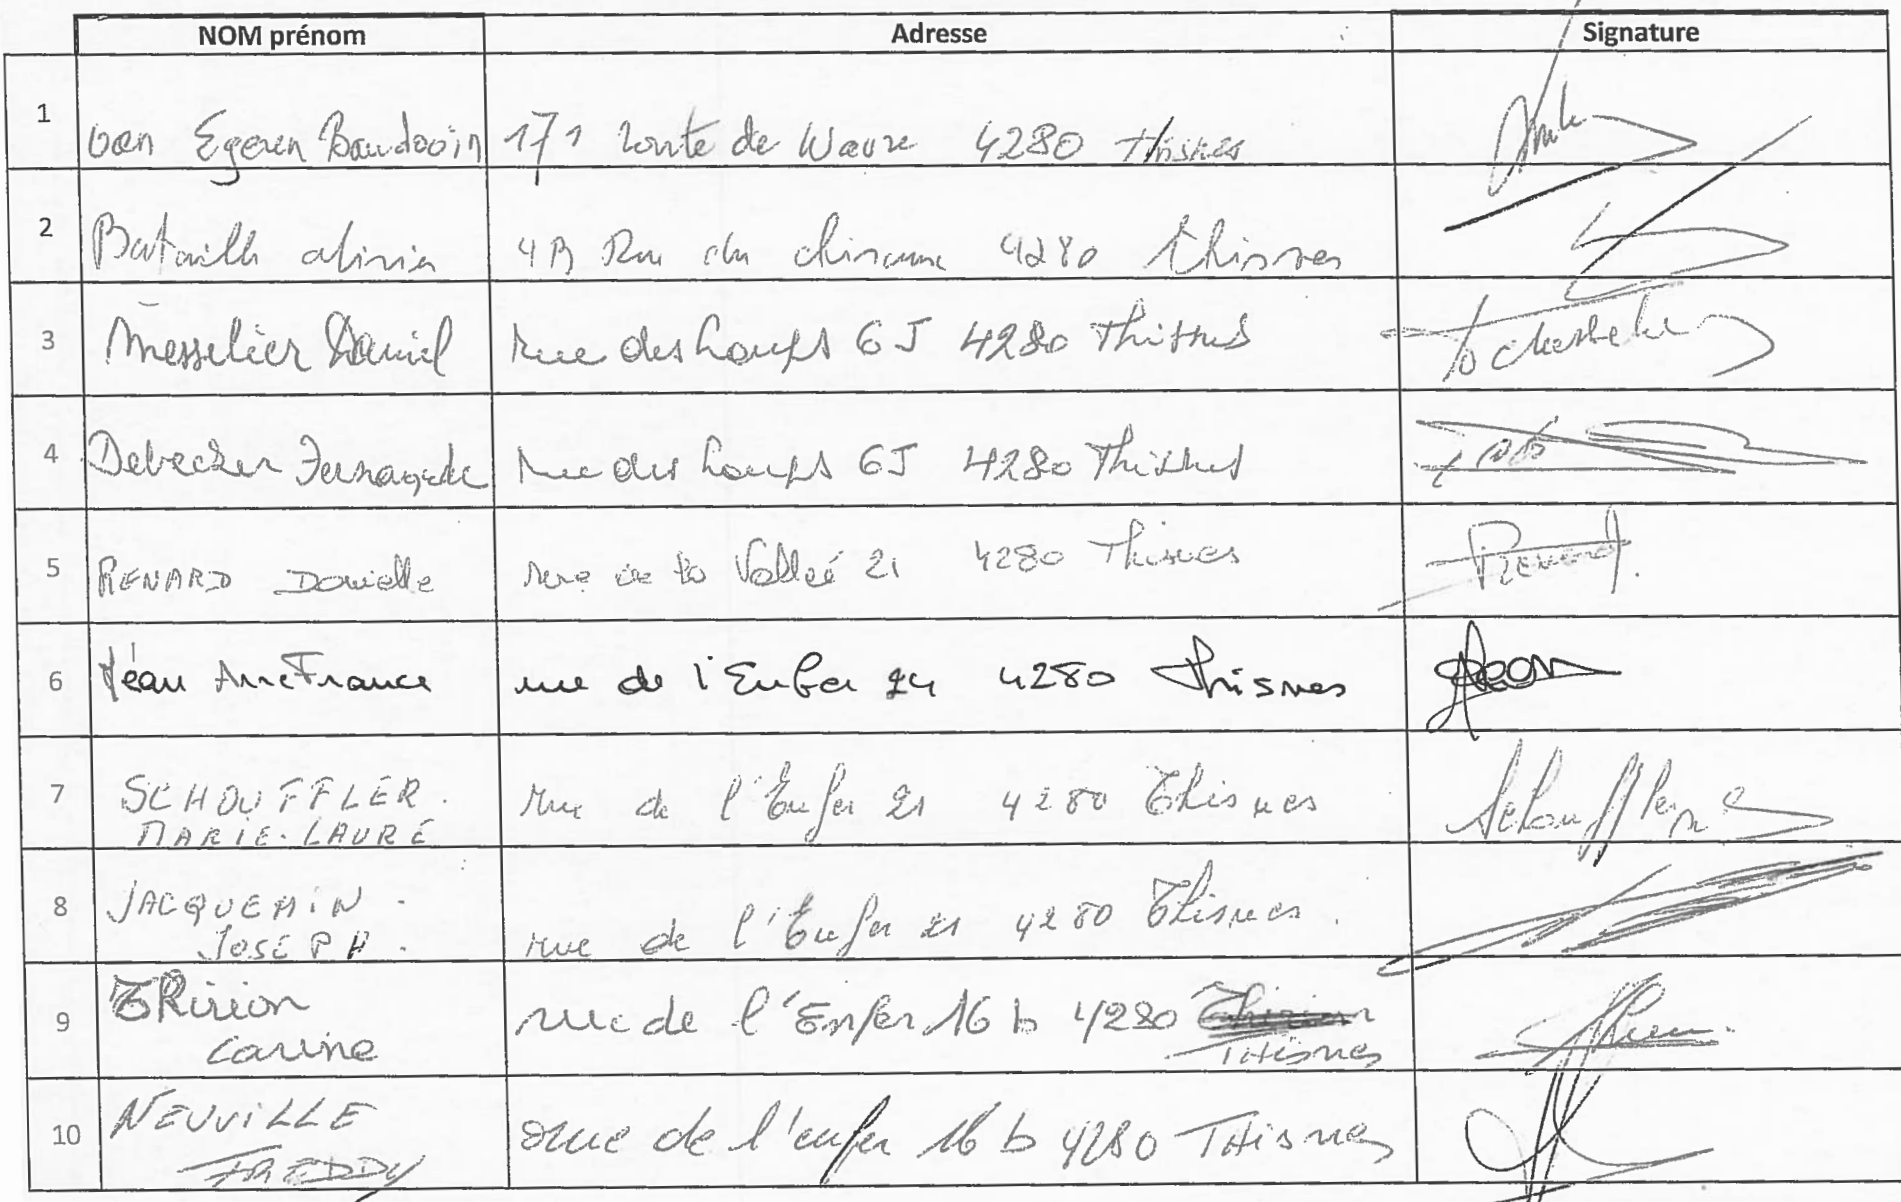 NOM prénom Adresse Signature
1 van Egeren Baudouin 171 route de Wavre 4280 Thisnes
2 4B Rue du 4280 Thisnes
3 Messelier Daniel Rue des Loups 6J 4280 Thisnes
4 Debecker rue des Loups 6J 4280 Thisnes
5 RENARD Danielle rue de la Vallée 21 4280 Thisnes Renard.
6 Léan AnneFrance rue de l'Enfer 24 4280 Thisnes
7 SCHOUFFLER. rue de l'Enfer 21 4280 Thisnes Schouffler
MARIE-LAURE
8 JACQUEMIN.
JOSEPH. rue de l'Enfer 21 4280 Thisnes.
9 Thirion rue de l'Enfer 16 b 4280
Carine THisnes
10 NEUVILLE rue de l'enfer 16 b 4280 THisnes
FREDDY